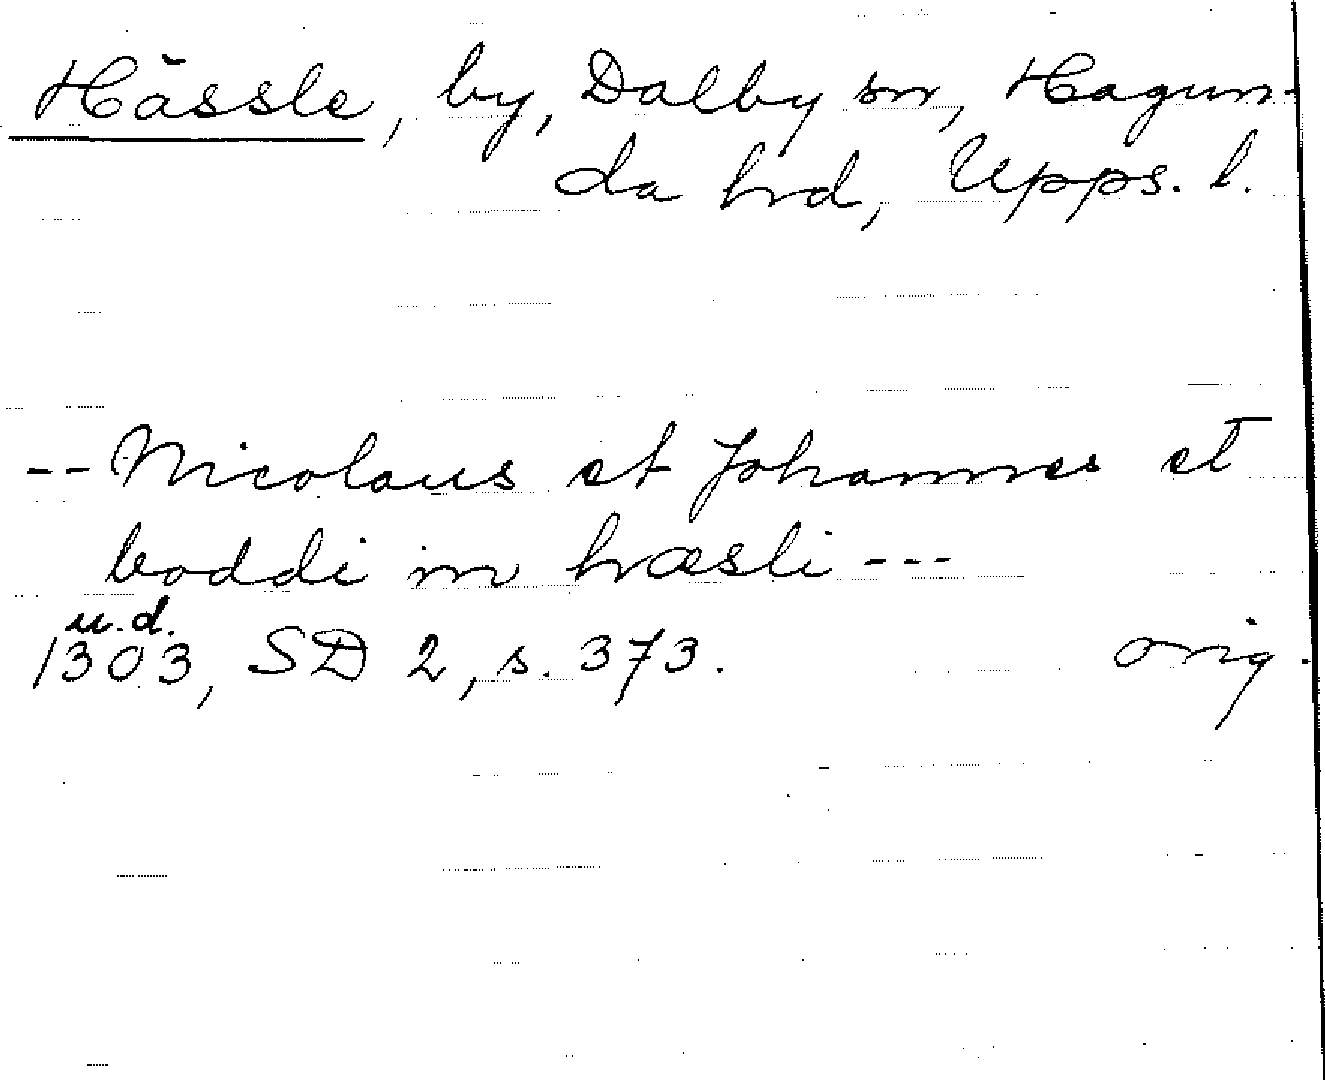 Hässle, by, Dalby sn, Hagun-
da hrd, Upps. l.
-- Nicolaus et Johannes et
boddi in hæsli ---
u.d.
1303, SD 2, s. 373. orig.